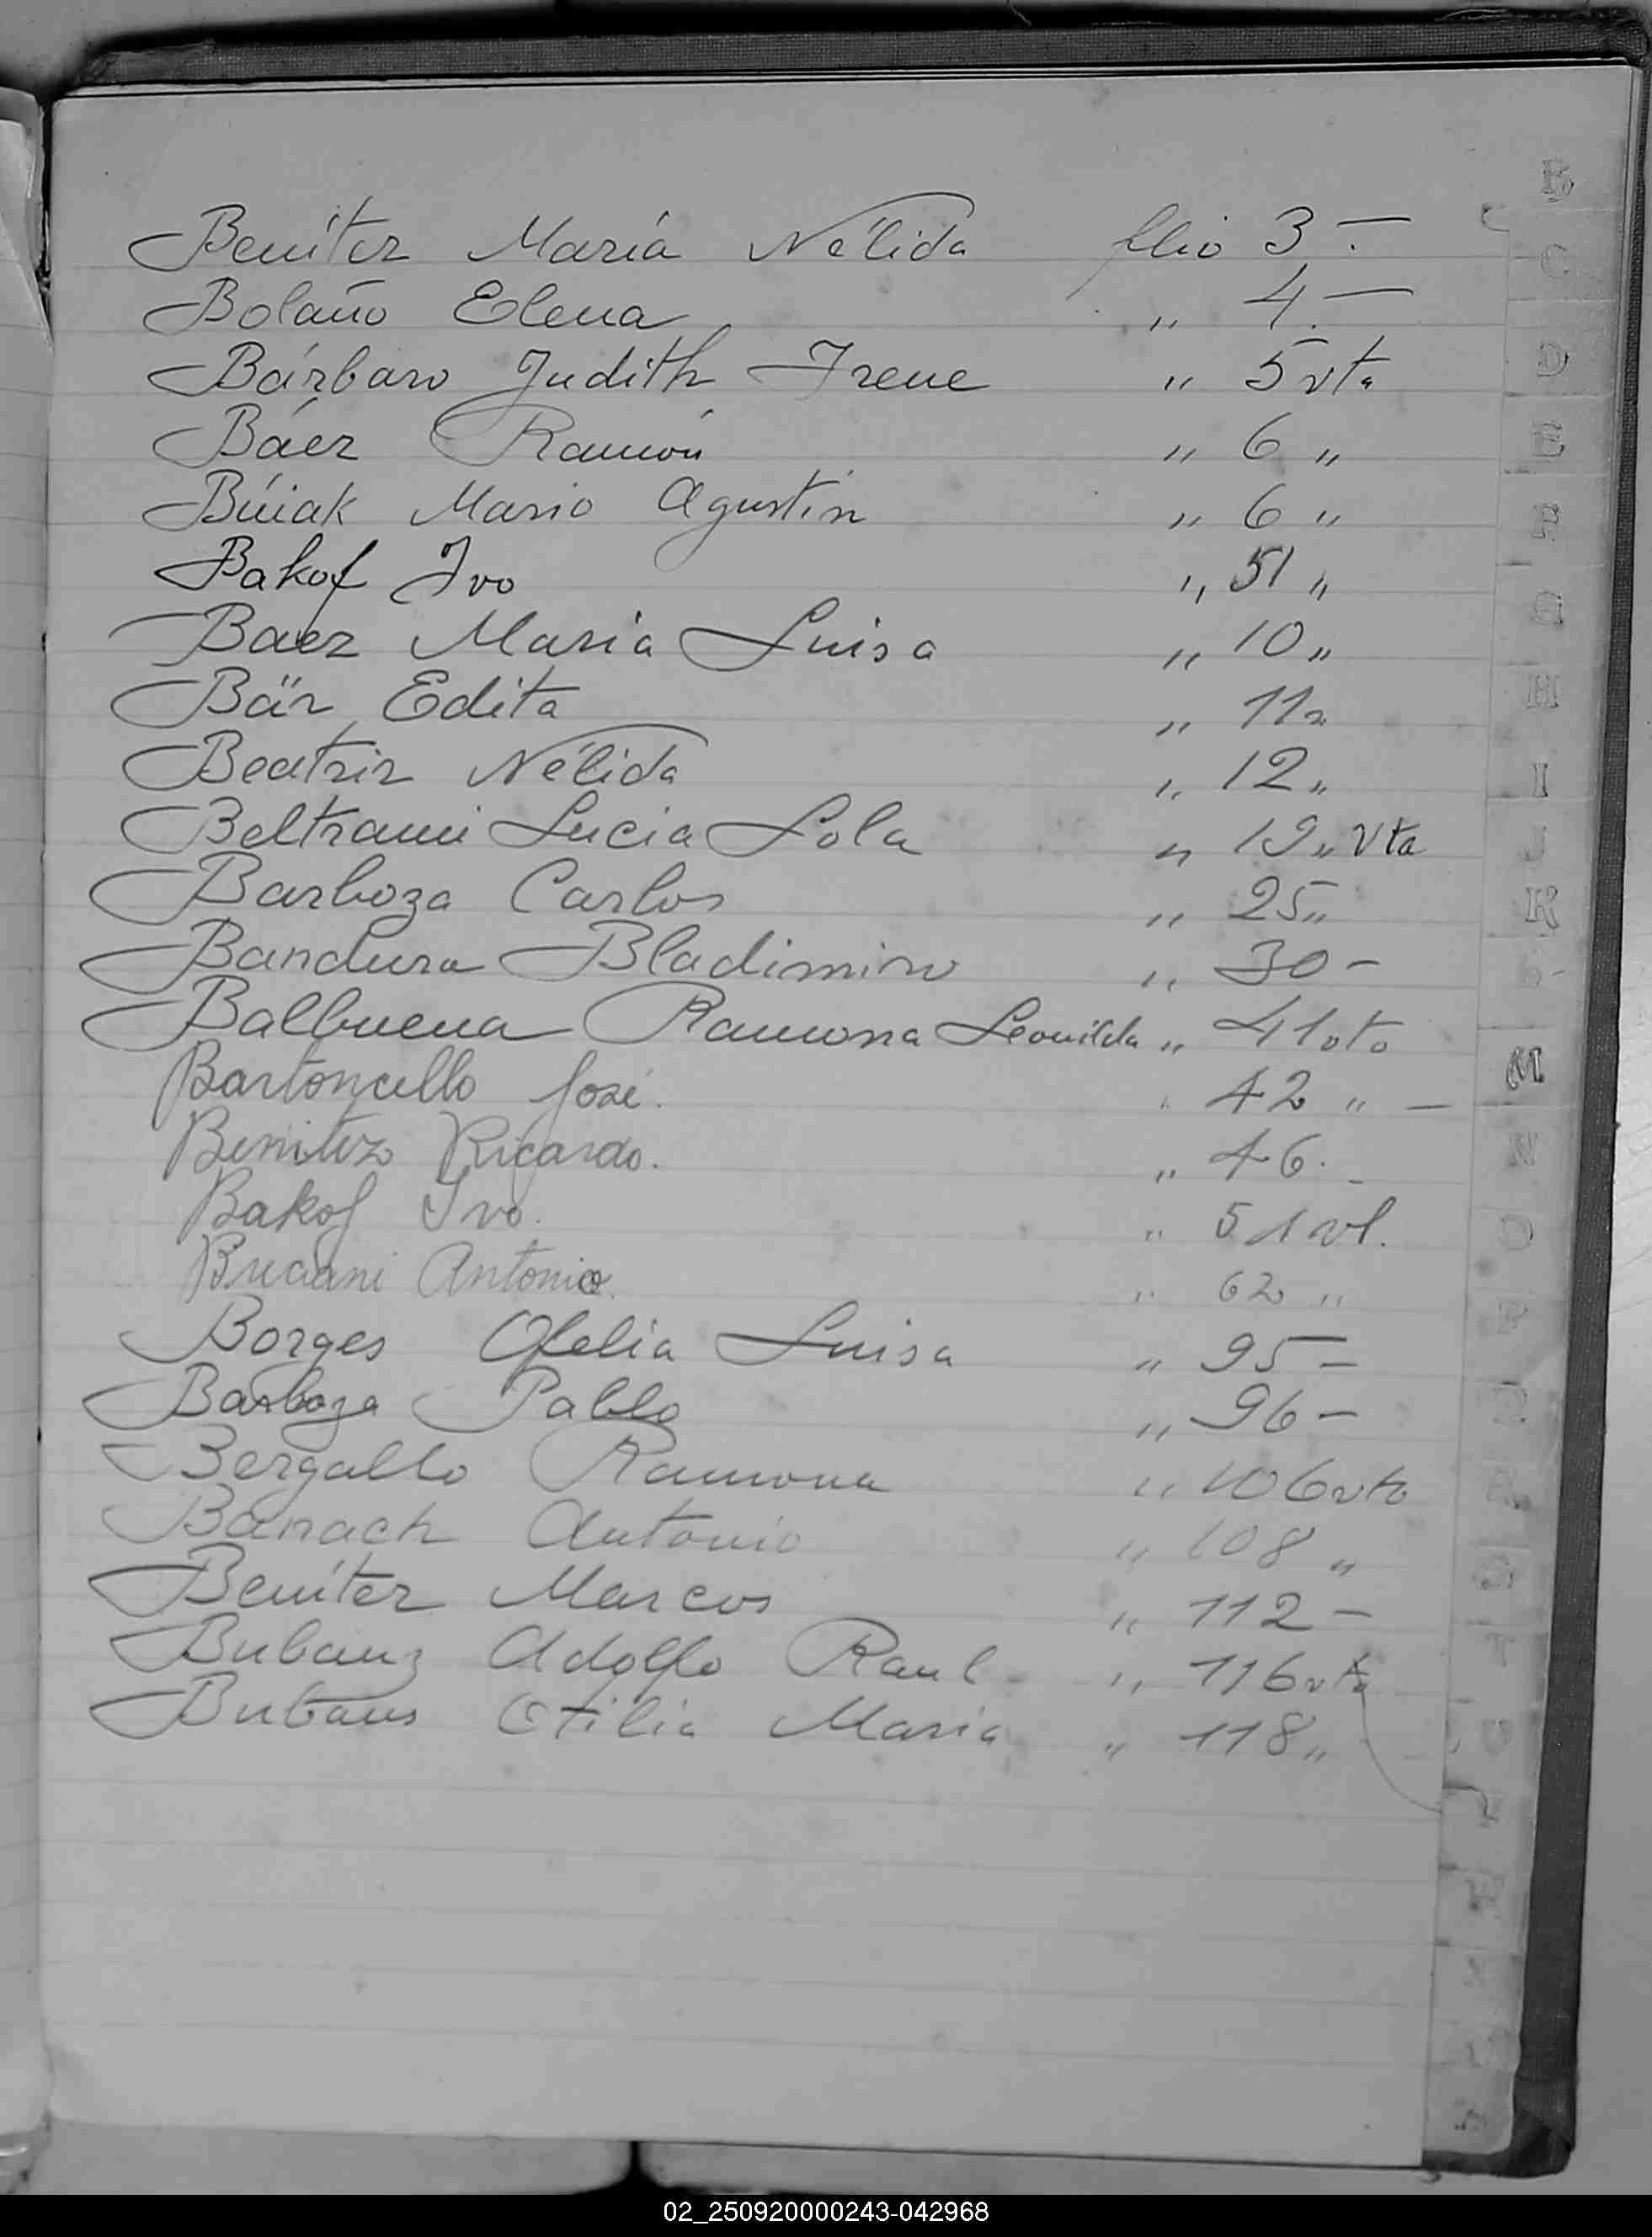 B
Benítez María Nélida folio 3.-
Bolaño Elena " 4.-
Bárbaro Judith Irene " 5 vta
Báez Ramón " 6 "
Búiak Mario Agustín " 6 "
Bakof Ivo " 51 "
Baez Maria Luisa " 10 "
Bär, Edita " 11 "
Beatriz Nélida " 12 "
Beltrami Lucia Lola " 19 " Vta
Barboza Carlos " 25 "
Bandura Bladimiro " 30 -
Balbuena Ramona Leonilda " 41 vto
Bartoncello José. " 42 " -
Benitez Ricardo. " 46. -
Bakof Ivo. " 51 vt.
Antonio. " 62 "
Borges Ofelia Luisa " 95 -
Barboza Pablo " 96 -
Bergallo Ramona " 106 vto
Banach Antonio " 108 "
Benítez Marcos " 112 -
Bubanz Adolfo Raul " 116 vta
Bubaus Otilia Maria " 118 "
C
D
E
F
G
H
I
J
K
M
N
O
02_250920000243-042968